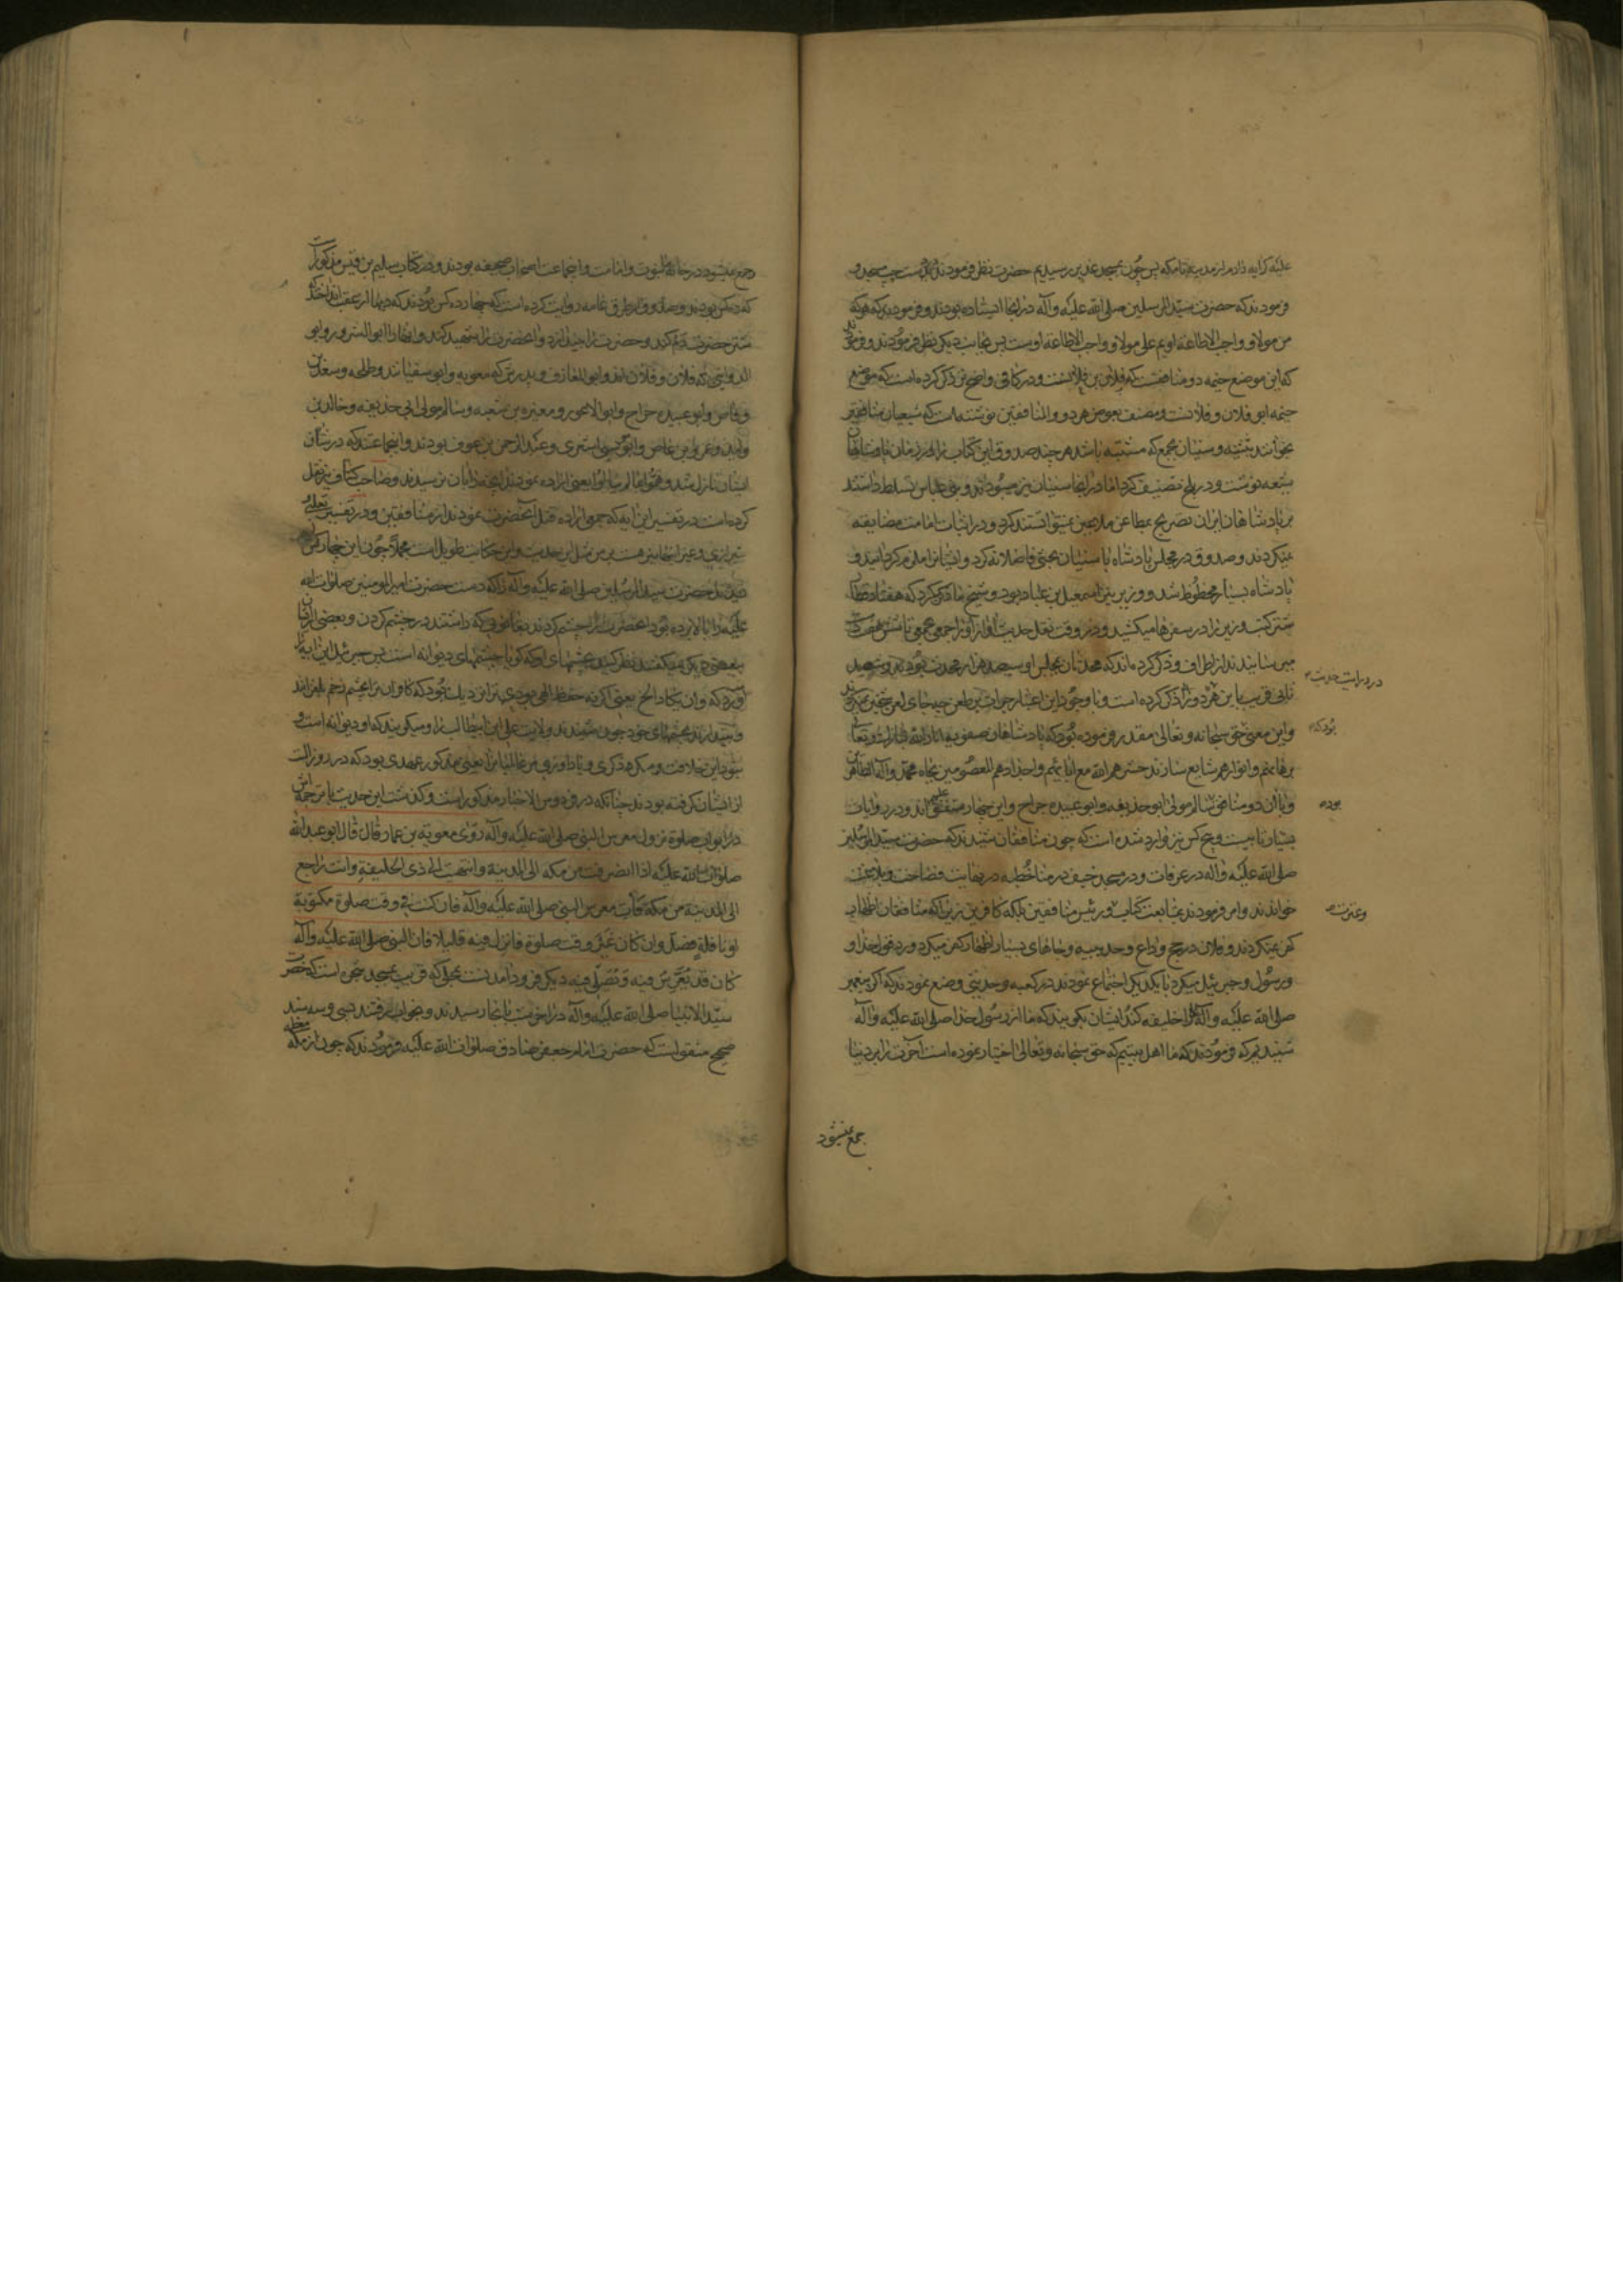 علیه کرایه دادم از مدینه تا مکه پس چون بمسجد غدیر رسیدیم حضرت نظر فرمودند بدست چپ مسجد و
فرمودند که حضرت سید المرسلین صلی الله علیه وآله در اینجا ایستاده بودند و فرمودند که هر که
من مولاو واجب الاطاعة اویم علی مولاو واجب الاطاعة اوست پس بجانب دیگر نظر فرمودند و فرمودند
که این موضع خیمه دو منافقست که فلان بن فلانست و در کافی واضح تر ذکر کرده است که موضع
خیمه ابو فلان و فلانست و مصنف بعوض هر دو والمنافقین نوشته است که شیعیان منافقین
بخوانند بتثنیه و سنیان بجمع که مشتبه باشد هر چند صدوق این کتاب را
شیعه نوشت و در بلخ تصنیف کرد اما در آنجا سنیان نیز میبودند و بنی عباس تسلط داشتند
بر پادشاهان ایران تصریح بمطاعن ملاعین نمیتوانستند کرد و در اثبات امامت مضایقه
نمیکردند و صدوق در مجلس پادشاه با سنیان بحثی فاضلانه کرد و ایشانرا ملزم گردانید و
پادشاه بسیار محظوظ شد و وزیر نیز اسمعیل بن عباد بود و شیخ ما ذکر کرد که هفتاد قطار
شتر کتب وزیر را در سفرها میکشید و در وقت نقل حدیث آواز او را جمعی
میرسانیدند از اطراف و ذکر کرده اند که محدثان مجلس او سیصد هزار محدث بودند و شهید
ثانی قریب باین در درایت حدیث ذکر کرده است و با وجود این اعتبار جرأت بر طعن چه جای لعن شیخین نمیکردند
واین معنی حق سبحانه وتعالی مقدر فرموده بود که پادشاهان صفویه انار الله تبارک وتعالی
برهانهم وانوارهم شایع سازند حشرهم الله مع ابائهم واجدادهم المعصومین بجاه محمد وآله الطاهرین
وبا آن دو منافق سالم مولی ابو حذیفه وابو عبیده جراح واین چهار متفق علیهم اند و در روایات
بسیار تا بیست و پنج کس نیز وارد شده است که چون منافقان شنیدند که حضرت سید المرسلین
صلی الله علیه وآله در عرفات و در مسجد خیف در منا خطبه در نهایت فصاحت وبلاغت
خواندند وامر فرمودند بمتابعت کتاب وعترت و رئیس منافقین بلکه کافرین زیرا که منافقان اظهار
کفر نمیکردند و فلان در حج وداع و حدیبیه و جاهای بسیار اظهار کفر میکرد و رد قول خدا و
ورسول و جبرئیل میکرد با یکدیگر اجتماع نمودند در کعبه و حدیثی وضع نمودند که اگر پیغمبر
صلی الله علیه وآله را خلیفه کند ایشان بگویند که ما از رسول خدا صلی الله علیه وآله
شنیدیم که فرمودند که ما اهل بیتیم که حق سبحانه وتعالی اختیار نموده است آخرت را بر دنیا
در درایت حدیث
بود که
بود
وعترت
جمع نمیشود
جمع نمیشود در خانه نبوت وامامت و این جماعت اصحاب صحیفه بودند و در کتاب سلیم بن قیس مذکور است
که ده کس بودند و صدوق از طرق عامه روایت کرده است که چهارده کس بودند که دبها از عقبه انداختند
شتر حضرت رم کند و حضرت را بیندازد و آنحضرت را شهید کنند و اینها را ابو الشرور و ابو
الدواهی که فلان و فلان اند و ابو المعازف و پدرش که معویه و ابو سفیانند و طلحه و سعد بن
وقاص و ابو عبیده جراح و ابو الاعور و مغیره بن شعبه و سالم مولی ابی حذیفه و خالد بن
ولید و عمرو بن عاص و ابو موسی اشعری و عبد الرحمن بن عوف بودند و اینجماعتند که در شأن
ایشان نازل شد وهموا بما لم ینالوا یعنی اراده نمودند آنچه را بآن نرسیدند و صاحب کشاف نیز نقل
کرده است در تفسیر این آیه که جمعی اراده قتل آنحضرت نمودند از منافقین و در تفسیر ثعلبی
شیرازی وغیر آنها نیز هست مثل این حدیث و این حکایت طویل است مجملا چون این چهار کس
دیدند حضرت سید المرسلین صلی الله علیه وآله را که دست حضرت امیر المومنین صلوات الله
علیه را بالا برده بود آنحضرت را چشم کردند که داشتند در چشم کردن و بعضی از ایشان
ببعضی دیگر میگفتند نظر کنید بچشمهای او که گویا چشمهای دیوانه است پس جبرئیل این آیه را
آورد که وان یکاد الخ یعنی اگر نه حفظ الهی بودی نزدیک بود که کافران ترا بچشم زخم بلغزانند
و بیندازند بچشمهای خود چون شنیدند ولایت علی بن ابیطالب را و میگویند که او دیوانه است و
نبود این خلافت مگر ذکری و یادآوری مر عالمیانرا یعنی مذکور عهدی بود که در روز الست
از ایشان گرفته بودند چنانکه در فردوس الاخبار مذکور است و گذشت این حدیث با ترجمه اش
در ابواب صلوة نزول معرس النبی صلی الله علیه وآله روی معویة بن عمار قال قال ابو عبد الله
صلوات الله علیه اذا انصرفت من مکة الی المدینة وانتهیت الی ذی الحلیفة وانت راجع
الی المدینة من مکة فأت معرس النبی صلی الله علیه وآله فان کنت فی وقت صلوة مکتوبة
او نافلة فصل وان کان غیر وقت صلوة فانزل فیه قلیلا فان النبی صلی الله علیه وآله
کان قد یعرس فیه ویصلی فیه دیگر فرود آمدنست بمحلی که قریب بمسجد شجره است که حضرت
سید الانبیا صلی الله علیه وآله در آخر شب بآنجا رسیدند و بخواب رفتند و بسه سند
صحیح منقولست که حضرت امام جعفر صادق صلوات الله علیه فرمودند که چون از مکه معظمه